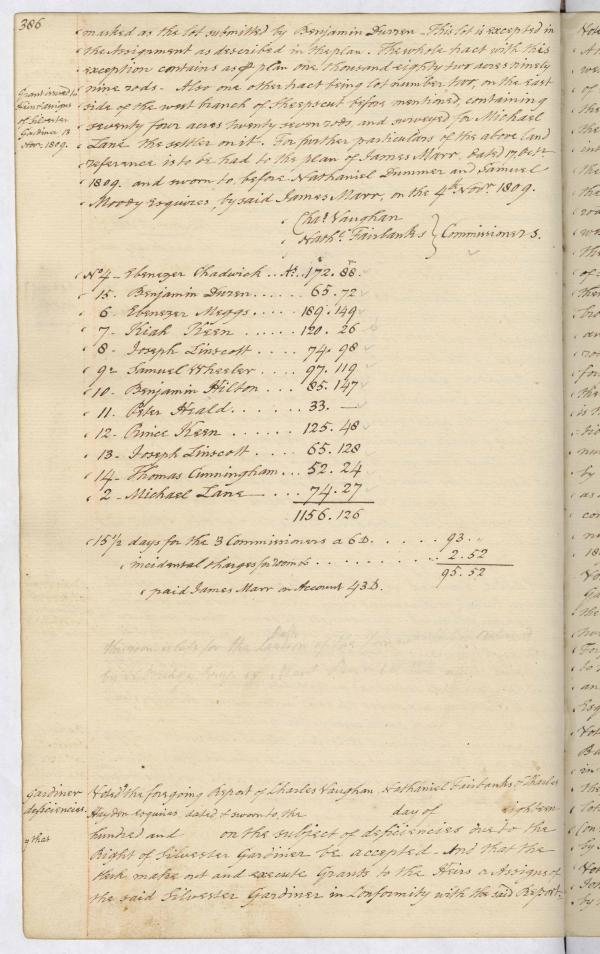 386
marked as the lot submitted by Benjamin Duren – This lot is excepted in
the Assignment as described in the plan. The whole tract with this
exception contains as plan one thousand eighty two acres ninety
nine rods – Also one other tract being lot number two, on the east
side of the west branch of Sheepscut before mentioned, containing
seventy four acres twenty seven rods, and surveyed for Michael
Lane the settler on it. For further particulars of the above land
reference is to be had to the plan of James Marr, dated 17, Octr.
1809. and sworn to, before Nathaniel Dummer and Samuel
Moody Esquires, by said James Marr, on the 4th Novr. 1809.
Grant issued to
heirs & assigns
of Silvester
Gardiner 13
Novr. 1809.
Chas. Vaughan
Nathl. Fairbanks } Commissioners.
No 4 – Ebenezer Chadwick .. As. 172. 88.
15. Benjamin Duren ..... 65. 72
6 – Ebenezer Meggs .... 189. 149
7 – Kiah Keen ..... 120. 26
8 – Joseph Linscott .... 74. 98
9 – Samuel Wheeler .... 97. 119
10 – Benjamin Hilton ... 85. 147
11. Peter Heald ...... 33. —
12 – Prince Keen ...... 125. 48
13 – Joseph Linscott .... 65. 128
14 – Thomas Cunningham ... 52. 24
2 – Michael Lane ... 74. 27
1156. 126
15 1/2 days for the 3 Commissioners a 6 D. ..... 93.
incidental charges for ........ 2. 52
95. 52
paid James Marr on Account 43 D.
Gardiner
deficiencies.
Voted the foregoing Report of Charles Vaughan Nathaniel Fairbanks & Charles
Hayden esquires dated & sworn to, the day of eighteen
hundred and on the subject of deficiencies due to the
Right of Silvester Gardiner be accepted – And that the
Clerk make out and execute Grants to the Heirs or Assigns of
the said Silvester Gardiner in Conformity with the said Report –